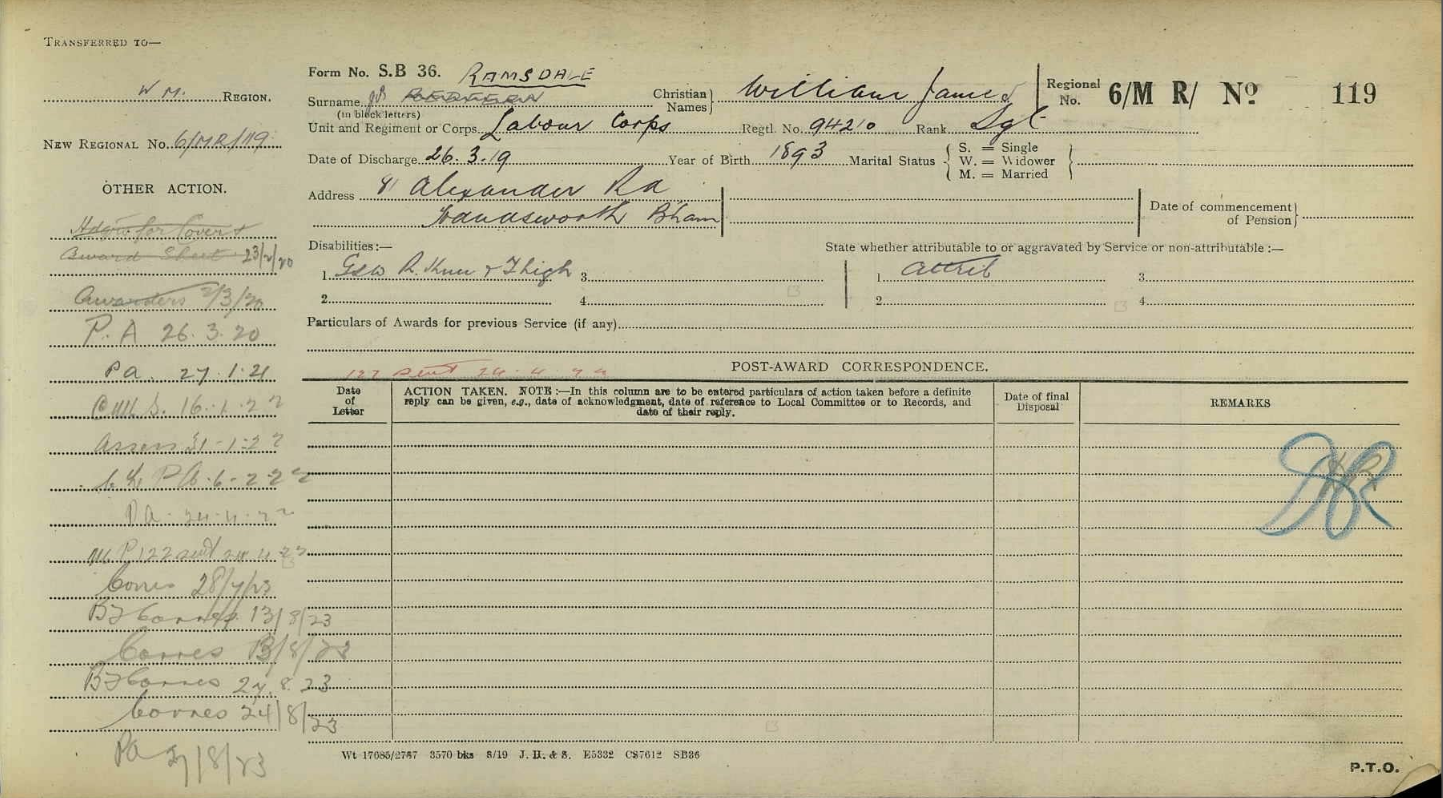 TRANSFERRED TO—
W M. REGION.
NEW REGIONAL No. 6/MR/119
OTHER ACTION.
for Cover &
Award Sheet 23/2/20
Awarders 2/3/20
P.A 26.3.20
Pa. 27.1.21
16.1.22
Assess 31.1.22
P A.6.2.22
Pa. 24.4.22
P122 sent 24.4.22
Corres 28/7/23
Corres 13/8/23
Corres 13/8/23
Corres 27.8.23
Corres 24/8/23
Pa 27/8/23
Form No. S.B 36. RAMSDALE
Surname
(in block letters)
Christian Names} William James
Regional No. 6/M R/ No 119
Unit and Regiment or Corps. Labour Corps Regtl. No. 94210 Rank Sgt
Date of Discharge. 26.3.19 Year of Birth 1893 Marital Status { S. = Single
W. = Widower
M. = Married }
Address 91 Alexander Rd
Handsworth Bham
Date of commencement of Pension}
Disabilities:—
State whether attributable to or aggravated by Service or non-attributable:—
1. GSW R. Knee & Thigh 3.
1. Attrib 3.
2. 4.
2. 4.
Particulars of Awards for previous Service (if any)
122 sent 24.4.22
POST-AWARD CORRESPONDENCE.
Date of Letter
ACTION TAKEN. NOTE:—In this column are to be entered particulars of action taken before a definite
reply can be given, e.g., date of acknowledgment, date of reference to Local Committee or to Records, and
date of their reply.
Date of final Disposal
REMARKS
Wt 17685/2787 3570 bks 8/19 J. H. & S. E5332 CS7612 SB36
P.T.O.